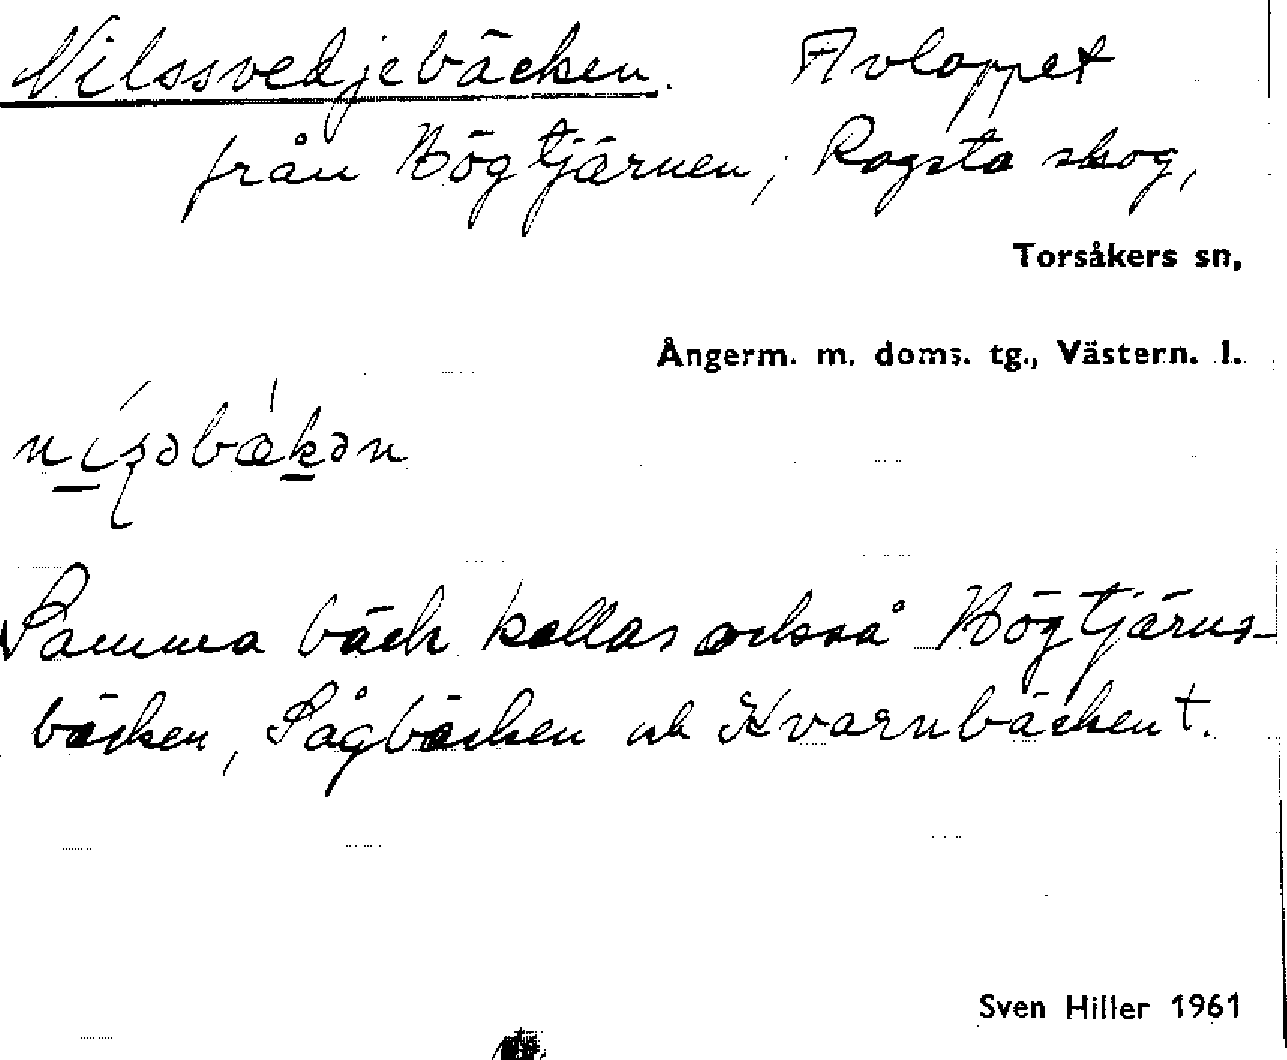 Nilssvedjebäcken. Avloppet
från Bögtjärnen, Rogsta skog,
Torsåkers sn,
Ångerm. m. doms. tg., Västern. l.
Samma bäck kallas också Bögtjärns-
bäcken, Sågbäcken och Kvarnbäcken †.
Sven Hiller 1961